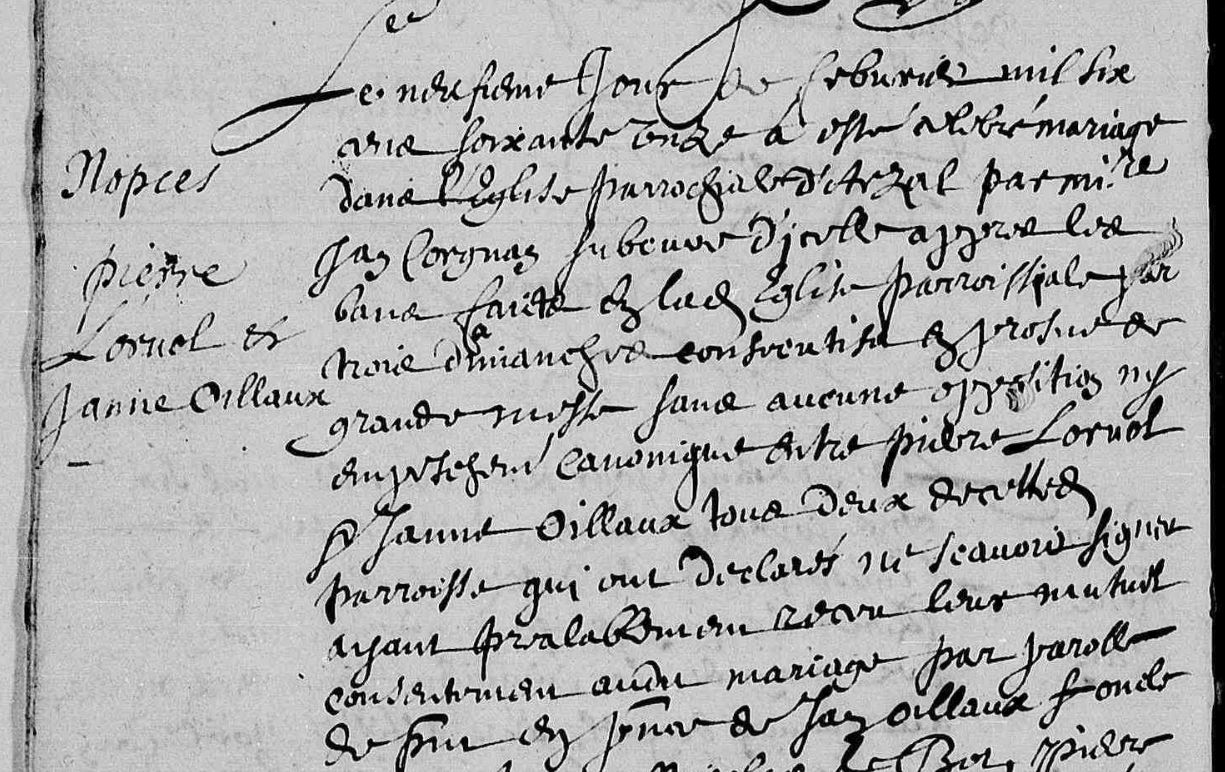 Nopces
pierre
Loruol et
Janne Oillaux
Le neufieme Jour de februrier mil six
cens soixante onze a esté celebré mariage
dans l'Eglise parrochiale d'Arzal par mi.re
Jan Corgnaz subcure d'icelle appres les
bans faicts en lad Eglise parroissiale par
trois dimanches consecutifs en prosne de
grande messe sans aucune opposition ny
empeschent Canonique entre pierre Loruol
& Janne Oillaux tous deux de cette d
parroisse qui ont declarés ne scauoir signer
ayant prealablement receu leur mutuel
consentement audit mariage par parolle
de pnt en pnce de Jan oillaux oncle
pierre